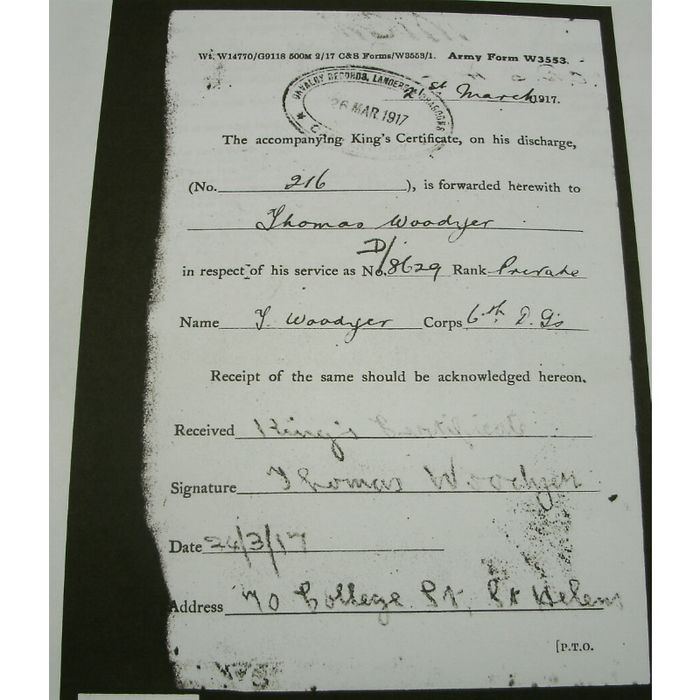 Wt. W14770/G9118 500M 2/17 C&S Forms/W3553/1. Army Form W3553.
CAVALRY RECORDS,
26 MAR 1917
21st March 1917.
The accompanying King's Certificate, on his discharge,
(No. 216 ), is forwarded herewith to
Thomas Woodyer
in respect of his service as No. D/8629 Rank Private
Name T. Woodyer Corps 6th D. Gs
Receipt of the same should be acknowledged hereon.
Received King's Certificate
Signature Thomas Woodyer
Date 24/3/17
Address 70 College St, St Helens
[P.T.O.